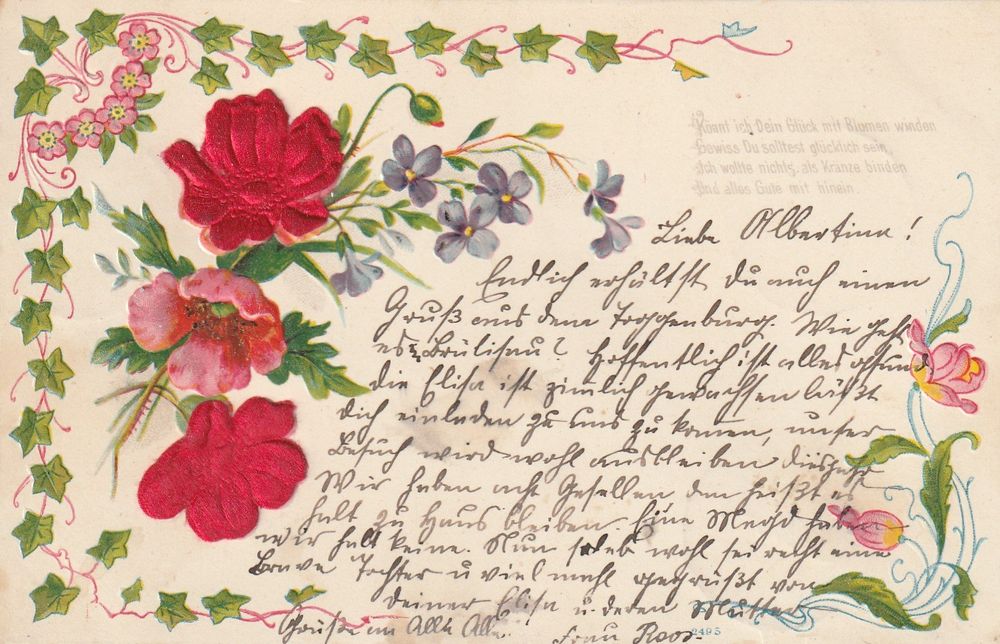 Könnt ich Dein Glück mit Blumen winden
Gewiss Du solltest glücklich sein,
Ich wollte nichts, als Kränze binden
Und alles Gute mit hinein.
Liebe Albertina!
Endlich erhältst Du auch einen
Gruß aus dem Toggenburg. Wie geht
es Brülisau? Hoffentlich ist alles gesund
die Elisa ist zimlich gewachsen läßt
dich einladen zu uns zu komen, unser
Besuch wird wohl ausbleiben dies Jahr
Wir haben acht Gesellen dan heißt es
halt zu Haus bleiben. Eine Magd haben
wir halt keine. Nun leb wohl sei recht eine
Brave Tochter u viel mahl gegrüßt von
deiner Elisa u. deren Mutter
Grüße an Alle Alle. Frau Roos
2495